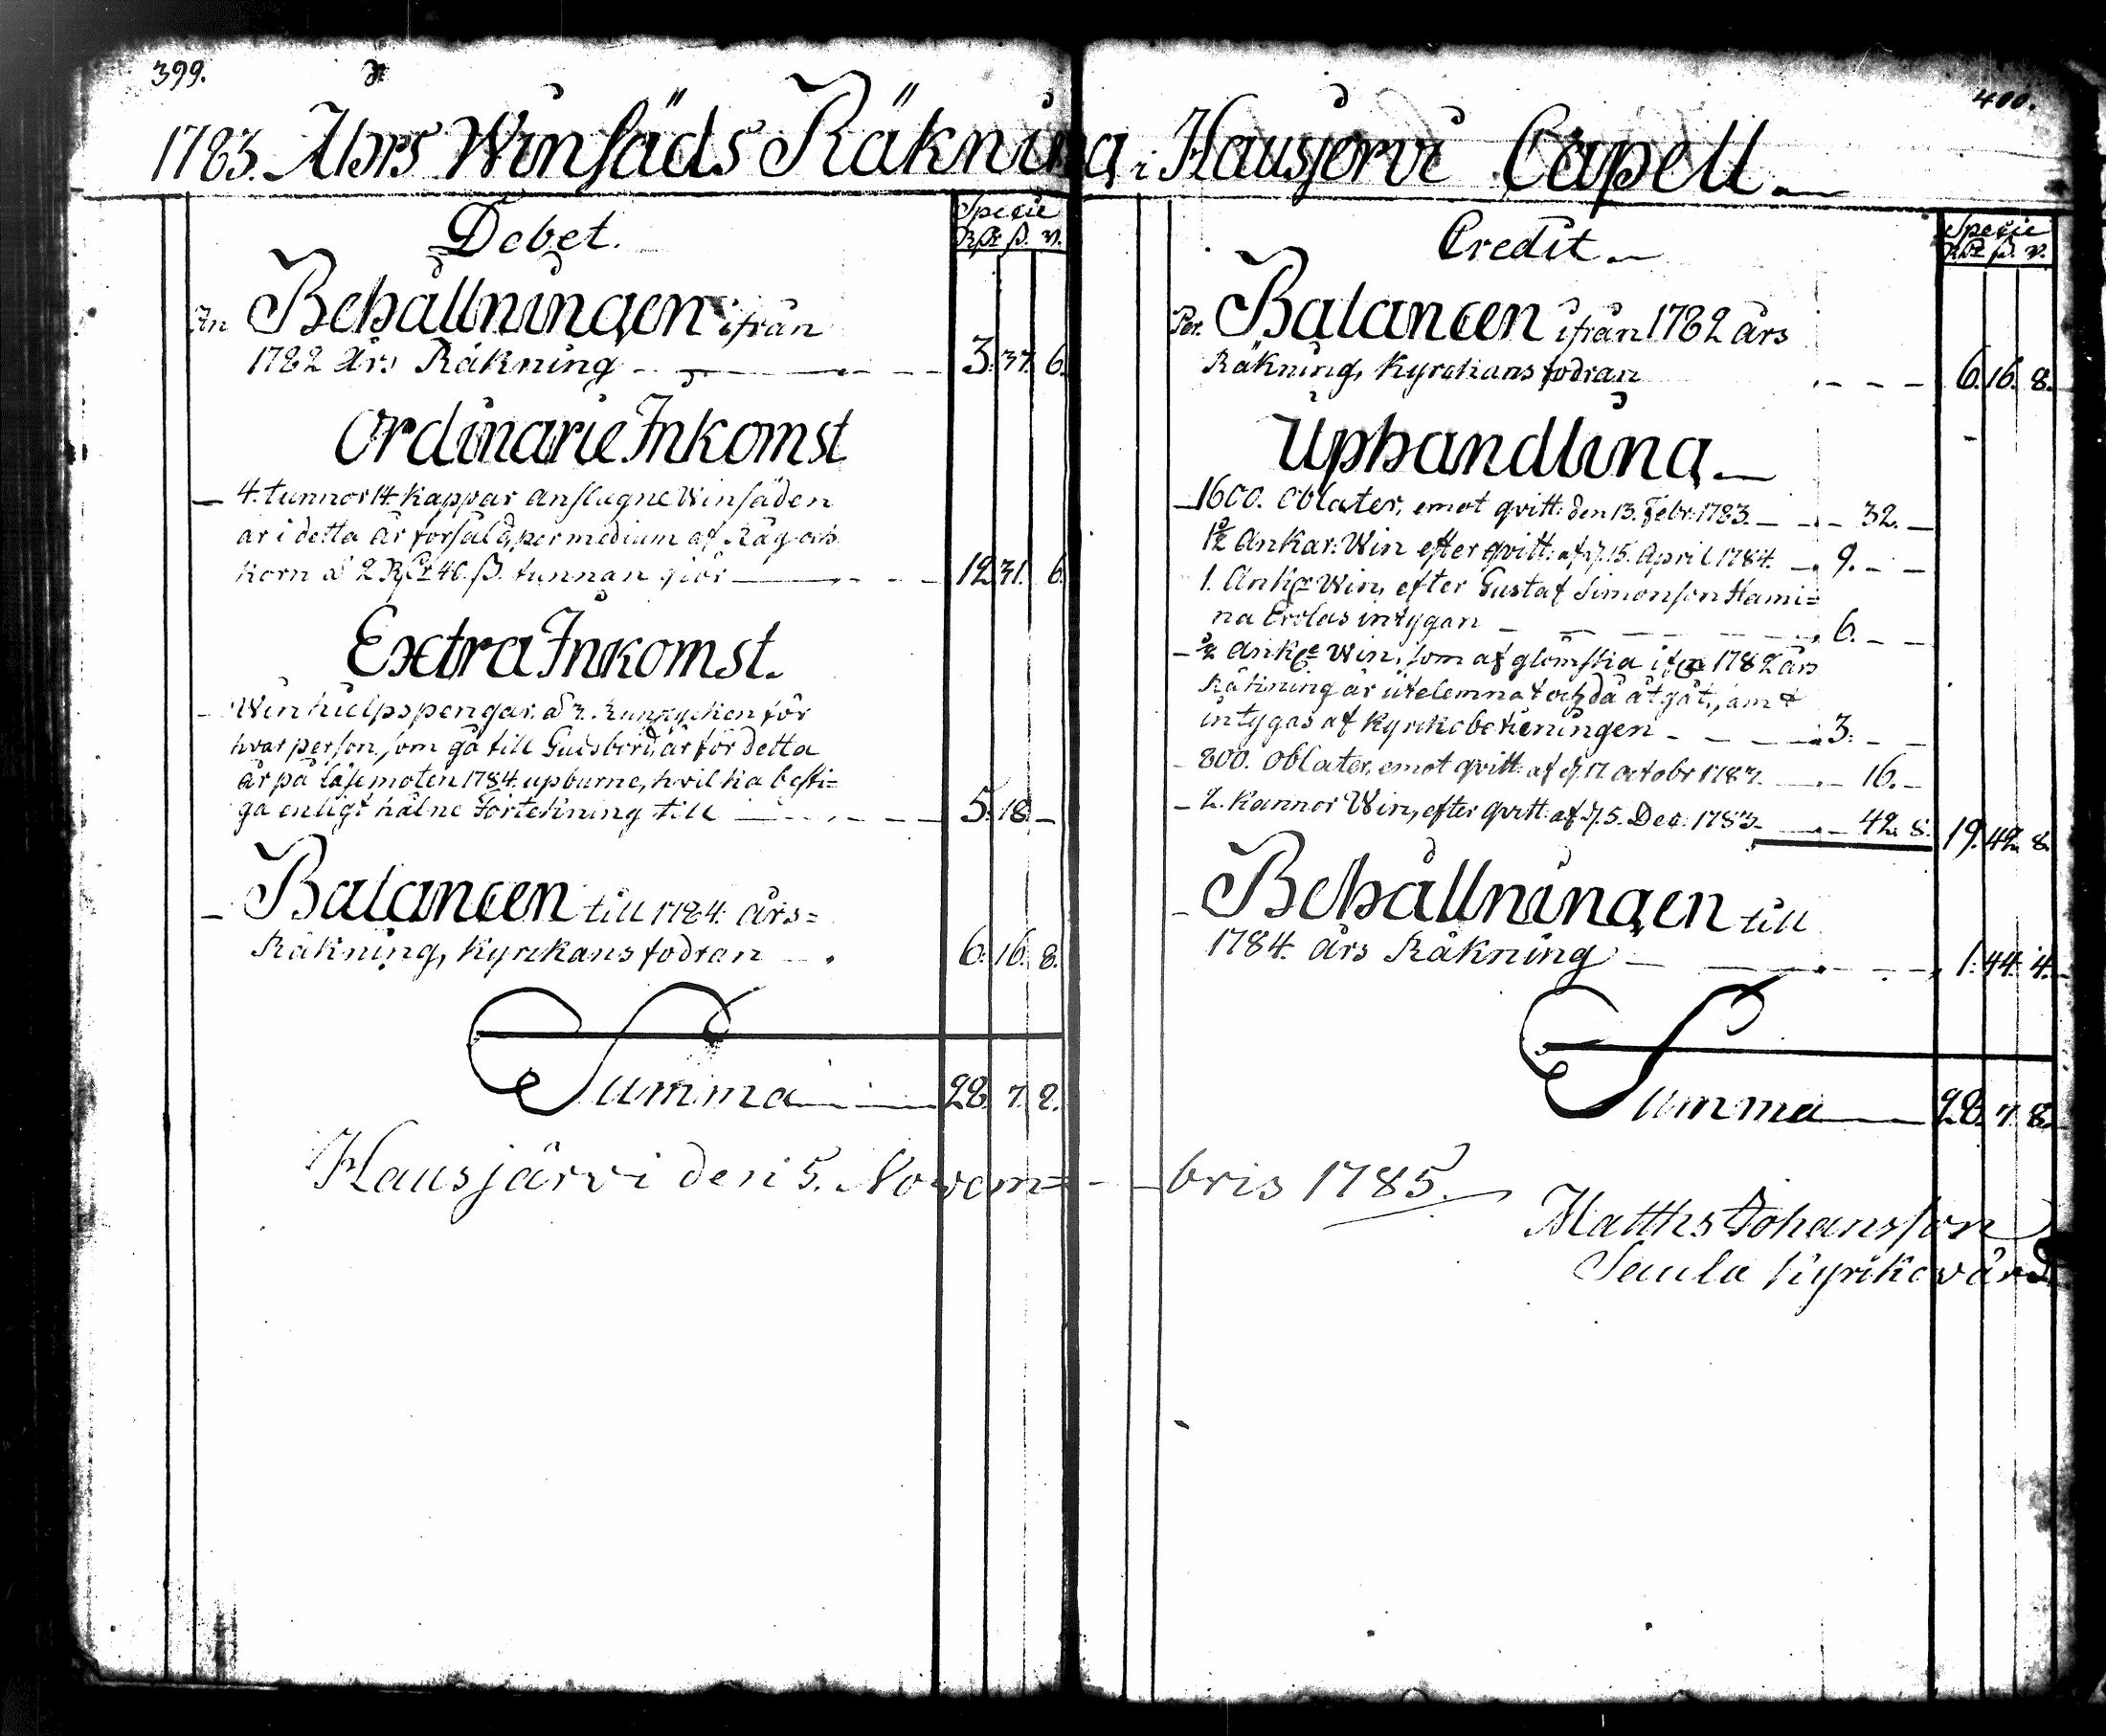 399.
1783. Åhrs Winsäds Räkning i Hausjervi Capell
Debet.
Specie
Rd:r ß. r.
In Behållningen ifrån
1782 års Räkning 3. 37. 6.
Ordinarie Inkomst
4. tunnor 14. kappar anslagne Winsäden
är i detta år försåld, per medium af Råg och
Korn à 2 Rd:r 40. ß. tunnan giör 12. 31. 6.
Extra Inkomst.
Winhielpspengar à 2. Runstycken för
hvar person, som gå till Guds bord, är för detta
år på Läsemöten 1784. upburne, hvilka besti=
ga enligt hålne Förtekning till 5. 18. –
Balancen till 1784. års=
Räkning, Kyrckans fodran 6. 16. 8.
Summa 28. 7. 8.
400.
Credit
Specie
Rd:r ß. r.
Per. Balancen ifrån 1782 års
Räkning, Kyrckans fodran 6. 16. 8.
Uphandling
1600. Oblater, emot qvitt: den 13. Febr: 1783. 32. –
1½ Ankar: Win efter qvitt: af d. 15. April 1784. 9. – –
1. Ank:r Win, efter Gustaf Simonson Hami=
na Erolas intygan 6. – –
½ Ank:e Win, som af glömska ifrån 1782 års
Räkning är utelemnat och då åtgåt, som
intygas af Kyrckobetieningen 3. – –
800. Oblater, emot qvitt: af d. 17 octobr 1783. 16. –
2. Kannor Win, efter qvitt: af d. 5. Dec: 1783. 42. 8. 19. 42. 8.
Behållningen till
1784. års Räkning 1. 44. 4.
Summa 28. 7. 8.
Hausjärvi den 5. Novem= bris 1785.
Matths Johansson
Seula Kyrkovärd